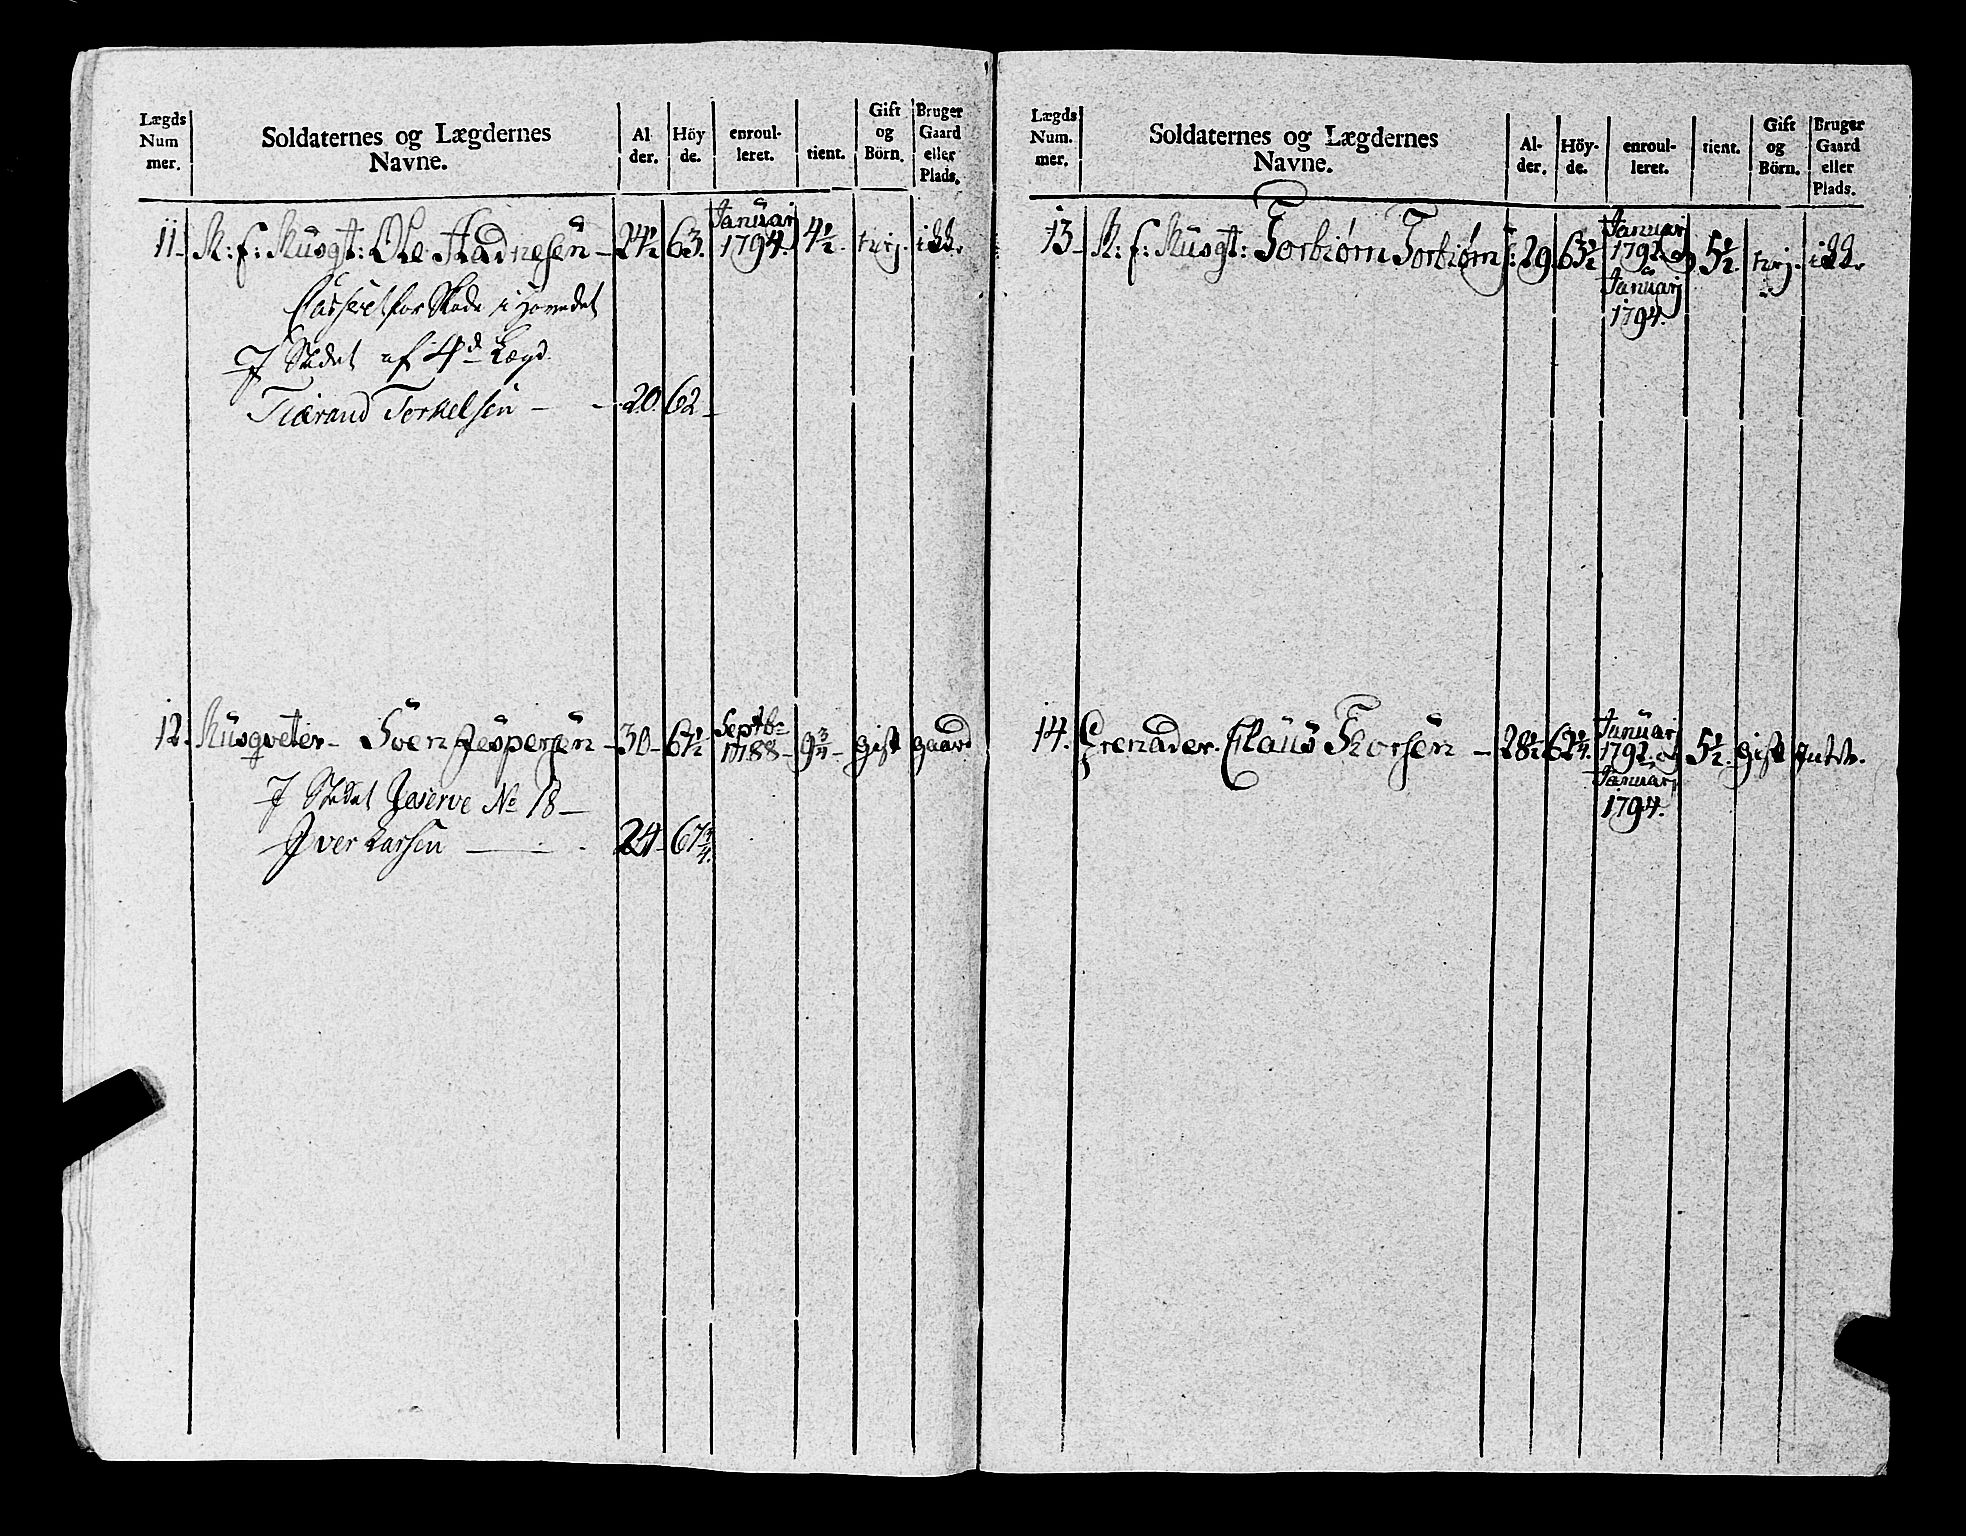 Lægds Num mer.
Soldaternes og Lægdernes Navne.
Al der.
Höy de.
enroul- leret.
tient.
Gift og Börn.
Bruger Gaard eller Plads.
11. R: f: Musqt: Ole Stadnesen - 24½ 63. Januarj 1794. 4½. nej. ikke
Casseret for Skade i Hovedet
I Stedet af 4d Lægd
Tiærand Torkelsen - 20. 62 -
12. Musqveter - Sven Jespersen - 30 - 61½ Septbr 1788 - 9¾ - gift gaard
I Stedet Reserve No 18 -
Iver Larsen - 24 - 67¾.
Lægds Num. mer.
Soldaternes og Lægdernes Navne.
Al- der.
Höy- de.
enroul- leret.
tient.
Gift og Börn.
Bruger Gaard eller Plads.
13 - R: f: Musqt: Torbiørn Torbiørns: 29. 63½ Januarj 1792. og Januarj 1794. 5½. nej. ikke
14. Grenader. Claus Thorsen - 28½ 62¼. Januarj 1792. og Januarj 1794. 5½. gift